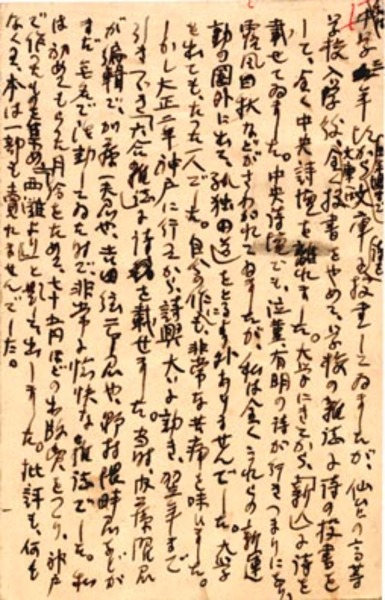 中学三年頃から文庫に投書してゐましたが、仙台の高等
学校入学後、全く投書をやめて、学校の雑誌に詩の投書を
して、全く中央詩壇を離れました。大学にきてから、「新人」に詩を
載せてゐました。中央詩壇でも、泣菫、有明の詩が行きつまりになり、
露風白秋などがさわがれてゐましたが、私は全くこれらの新運
動の圏外に出て、孤独の道をとるより外ありませんでした。大学
を出ても、たった一人でした。自分の作にも、非常な苦痛を味ひました。
しかし大正二年神戸に行ってから、詩興大いに動き、翌年まで
引きつづき「六合雑誌」に詩を載せました。当時、内ヶ崎君
が編輯で、加藤一夫君や、吉田絃二郎君や、野村隈畔君などが
まだ無名で活動してゐた時で、非常に愉快な雑誌でした。私
は初めてもらった月給をためて、七十五円ほどの出版費をつくり、神戸
で作ったものを集め「西灘より」と題して出しました。批評も、何も
なくて、本は一部も売れませんでした。